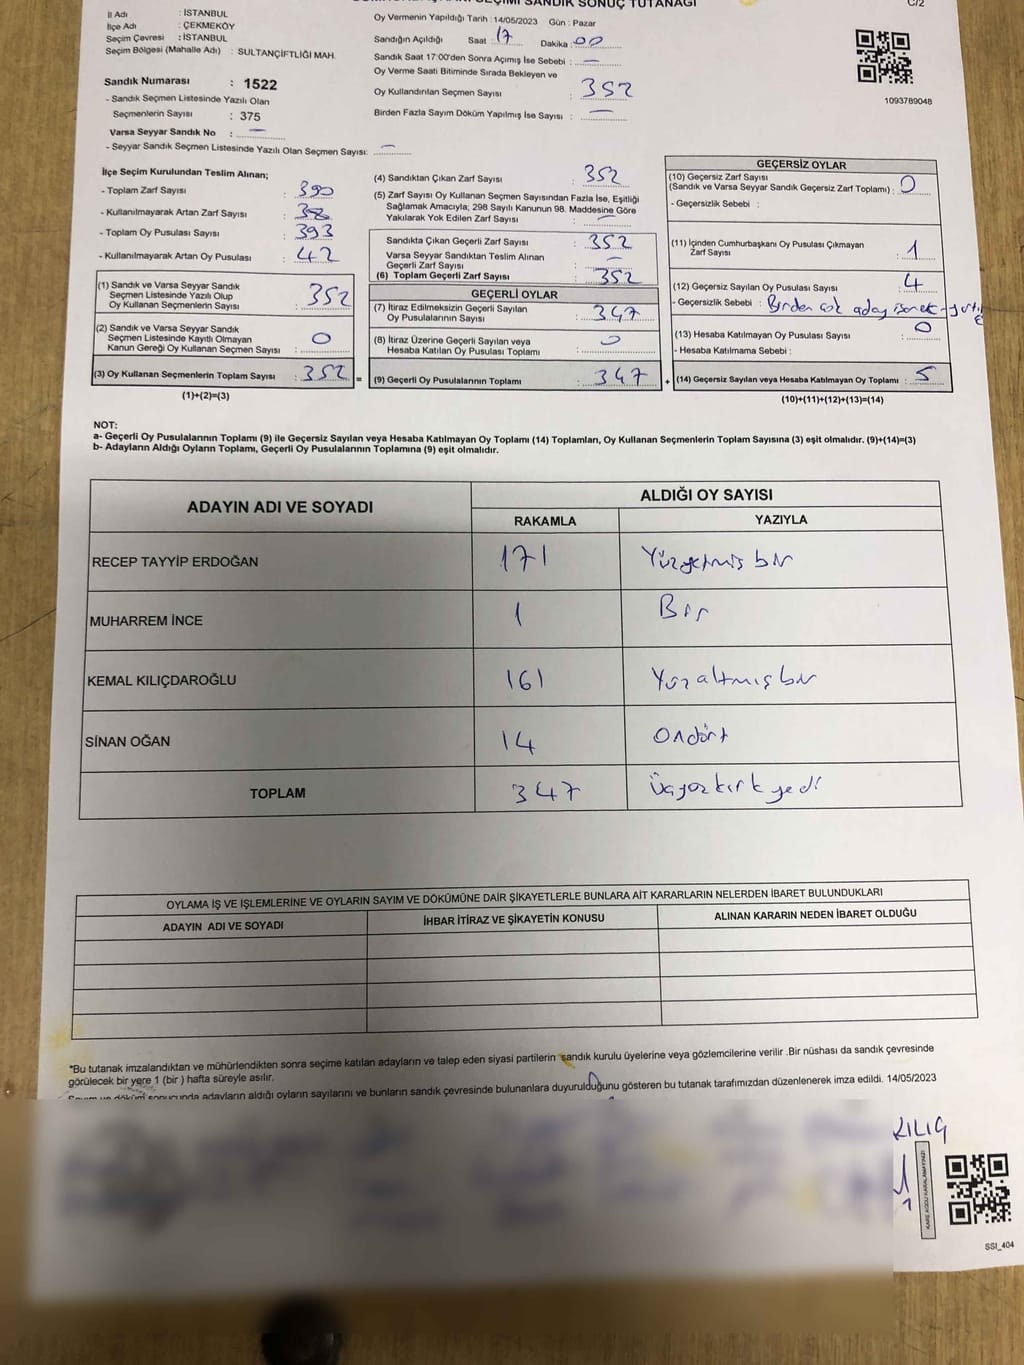 SANDIK SONUÇ TUTANAĞI
C/2
İl Adı : İSTANBUL
İlçe Adı : ÇEKMEKÖY
Seçim Çevresi : İSTANBUL
Seçim Bölgesi (Mahalle Adı) : SULTANÇİFTLİĞİ MAH.
Sandık Numarası : 1522
- Sandık Seçmen Listesinde Yazılı Olan
Seçmenlerin Sayısı : 375
Varsa Seyyar Sandık No : —
- Seyyar Sandık Seçmen Listesinde Yazılı Olan Seçmen Sayısı: —
Oy Vermenin Yapıldığı Tarih : 14/05/2023 Gün : Pazar
Sandığın Açıldığı Saat : 17 Dakika : 00
Sandık Saat 17:00'den Sonra Açımış İse Sebebi : —
Oy Verme Saati Bitiminde Sırada Bekleyen ve
Oy Kullandırılan Seçmen Sayısı : 352
Birden Fazla Sayım Döküm Yapılmış İse Sayısı : —
1093789048
İlçe Seçim Kurulundan Teslim Alınan;
- Toplam Zarf Sayısı : 390
- Kullanılmayarak Artan Zarf Sayısı : 38
- Toplam Oy Pusulası Sayısı : 393
- Kullanılmayarak Artan Oy Pusulası : 42
(1) Sandık ve Varsa Seyyar Sandık
Seçmen Listesinde Yazılı Olup
Oy Kullanan Seçmenlerin Sayısı : 352
(2) Sandık ve Varsa Seyyar Sandık
Seçmen Listesinde Kayıtlı Olmayan
Kanun Gereği Oy Kullanan Seçmen Sayısı : 0
(3) Oy Kullanan Seçmenlerin Toplam Sayısı : 352 =
(1)+(2)=(3)
(4) Sandıktan Çıkan Zarf Sayısı : 352
(5) Zarf Sayısı Oy Kullanan Seçmen Sayısından Fazla İse, Eşitliği
Sağlamak Amacıyla; 298 Sayılı Kanunun 98. Maddesine Göre
Yakılarak Yok Edilen Zarf Sayısı : —
Sandıkta Çıkan Geçerli Zarf Sayısı : 352
Varsa Seyyar Sandıktan Teslim Alınan
Geçerli Zarf Sayısı : —
(6) Toplam Geçerli Zarf Sayısı : 352
GEÇERLİ OYLAR
(7) İtiraz Edilmeksizin Geçerli Sayılan
Oy Pusulalarının Sayısı : 347
(8) İtiraz Üzerine Geçerli Sayılan veya
Hesaba Katılan Oy Pusulası Toplamı : 0
(9) Geçerli Oy Pusulalarının Toplamı : 347 +
GEÇERSİZ OYLAR
(10) Geçersiz Zarf Sayısı
(Sandık ve Varsa Seyyar Sandık Geçersiz Zarf Toplamı) : 0
- Geçersizlik Sebebi :
(11) İçinden Cumhurbaşkanı Oy Pusulası Çıkmayan
Zarf Sayısı : 1
(12) Geçersiz Sayılan Oy Pusulası Sayısı : 4
- Geçersizlik Sebebi : Birden çok aday
(13) Hesaba Katılmayan Oy Pusulası Sayısı : 0
- Hesaba Katılmama Sebebi :
(14) Geçersiz Sayılan veya Hesaba Katılmayan Oy Toplamı : 5
(10)+(11)+(12)+(13)=(14)
NOT:
a- Geçerli Oy Pusulalarının Toplamı (9) ile Geçersiz Sayılan veya Hesaba Katılmayan Oy Toplamı (14) Toplamları, Oy Kullanan Seçmenlerin Toplam Sayısına (3) eşit olmalıdır. (9)+(14)=(3)
b- Adayların Aldığı Oyların Toplamı, Geçerli Oy Pusulalarının Toplamına (9) eşit olmalıdır.
ADAYIN ADI VE SOYADI ALDIĞI OY SAYISI
RAKAMLA YAZIYLA
RECEP TAYYİP ERDOĞAN 171 Yüzyetmiş bir
MUHARREM İNCE 1 Bir
KEMAL KILIÇDAROĞLU 161 Yüzaltmış bir
SİNAN OĞAN 14 Ondört
TOPLAM 347 Üçyüzkırk yedi
OYLAMA İŞ VE İŞLEMLERİNE VE OYLARIN SAYIM VE DÖKÜMÜNE DAİR ŞİKAYETLERLE BUNLARA AİT KARARLARIN NELERDEN İBARET BULUNDUKLARI
ADAYIN ADI VE SOYADI İHBAR İTİRAZ VE ŞİKAYETİN KONUSU ALINAN KARARIN NEDEN İBARET OLDUĞU
*Bu tutanak imzalandıktan ve mühürlendikten sonra seçime katılan adayların ve talep eden siyasi partilerin sandık kurulu üyelerine veya gözlemcilerine verilir .Bir nüshası da sandık çevresinde
görülecek bir yere 1 (bir ) hafta süreyle asılır.
Sayım ve döküm sonucunda adayların aldığı oyların sayılarını ve bunların sandık çevresinde bulunanlara duyurulduğunu gösteren bu tutanak tarafımızdan düzenlenerek imza edildi. 14/05/2023
KILIÇ
KARE KODU KARALAMAYINIZ!
SSI_404